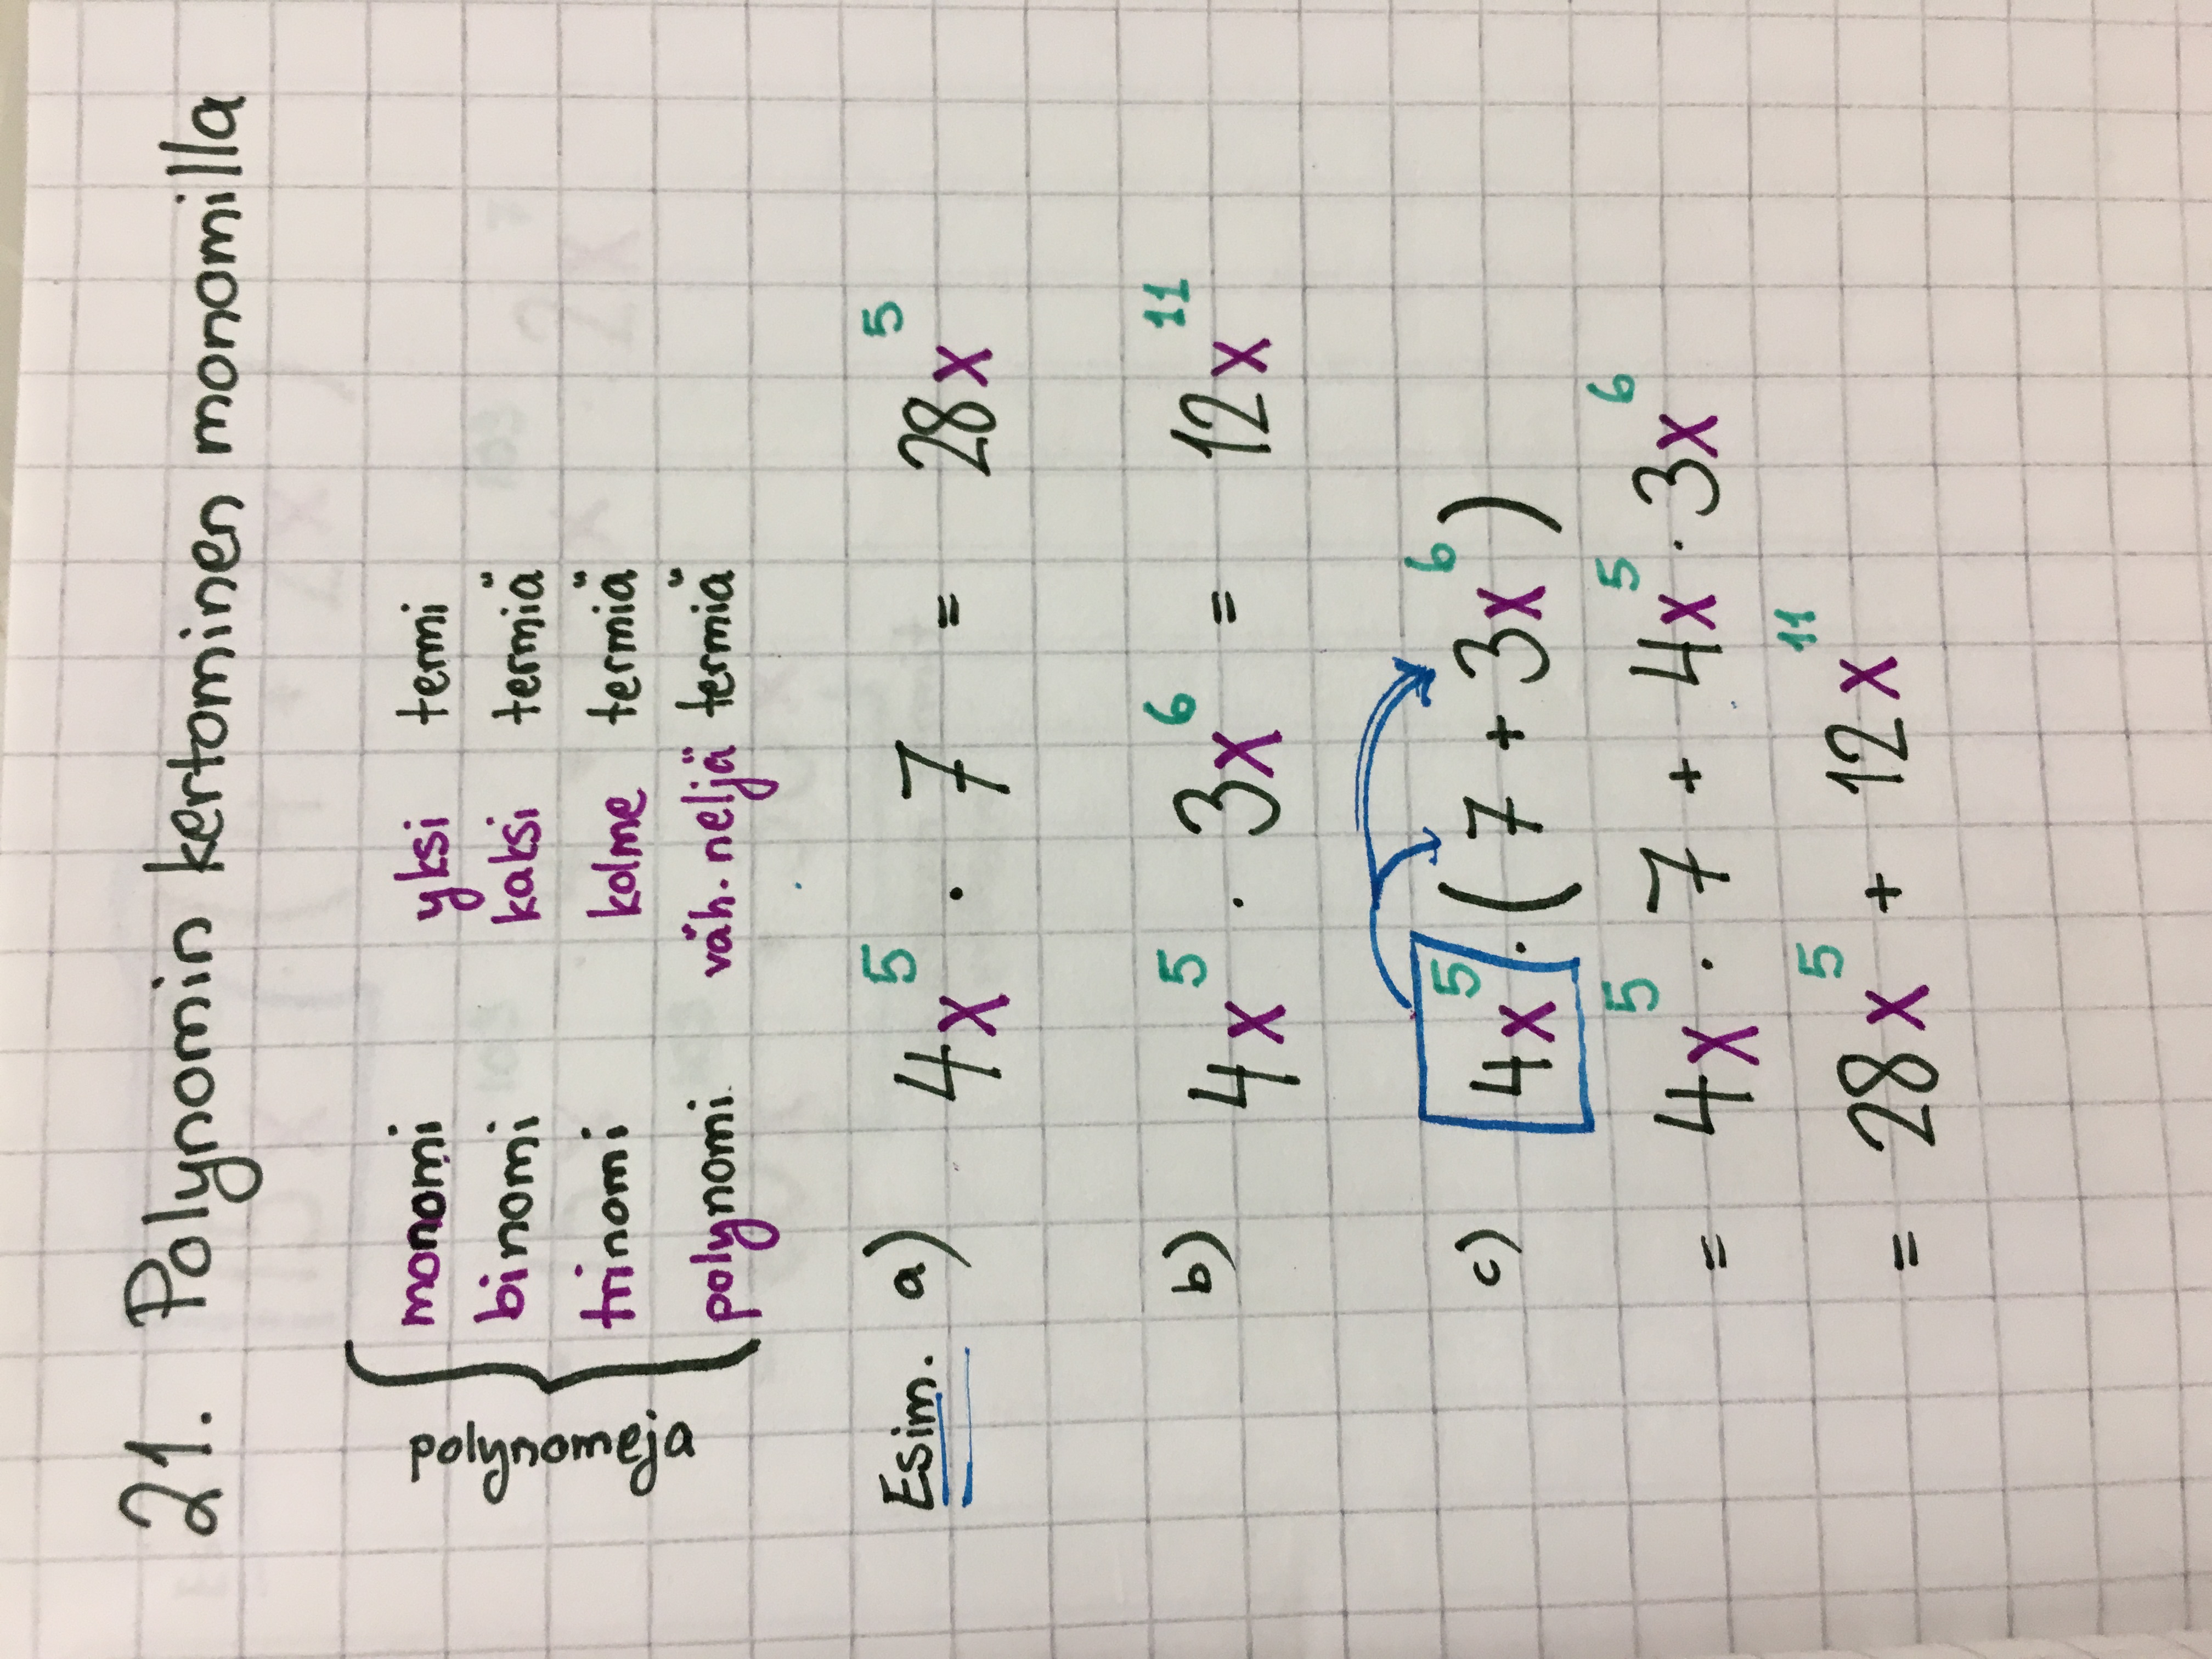 21. Polynomin kertominen monomilla
monomi yksi termi
binomi kaksi termiä
polynomeja
trinomi kolme termiä
polynomi. väh. neljä termiä
Esim. a) 4x⁵ · 7 = 28x⁵
b) 4x⁵ · 3x⁶ = 12x¹¹
c) 4x⁵ · (7 + 3x⁶)
= 4x⁵ · 7 + 4x⁵ · 3x⁶
= 28x⁵ + 12x¹¹